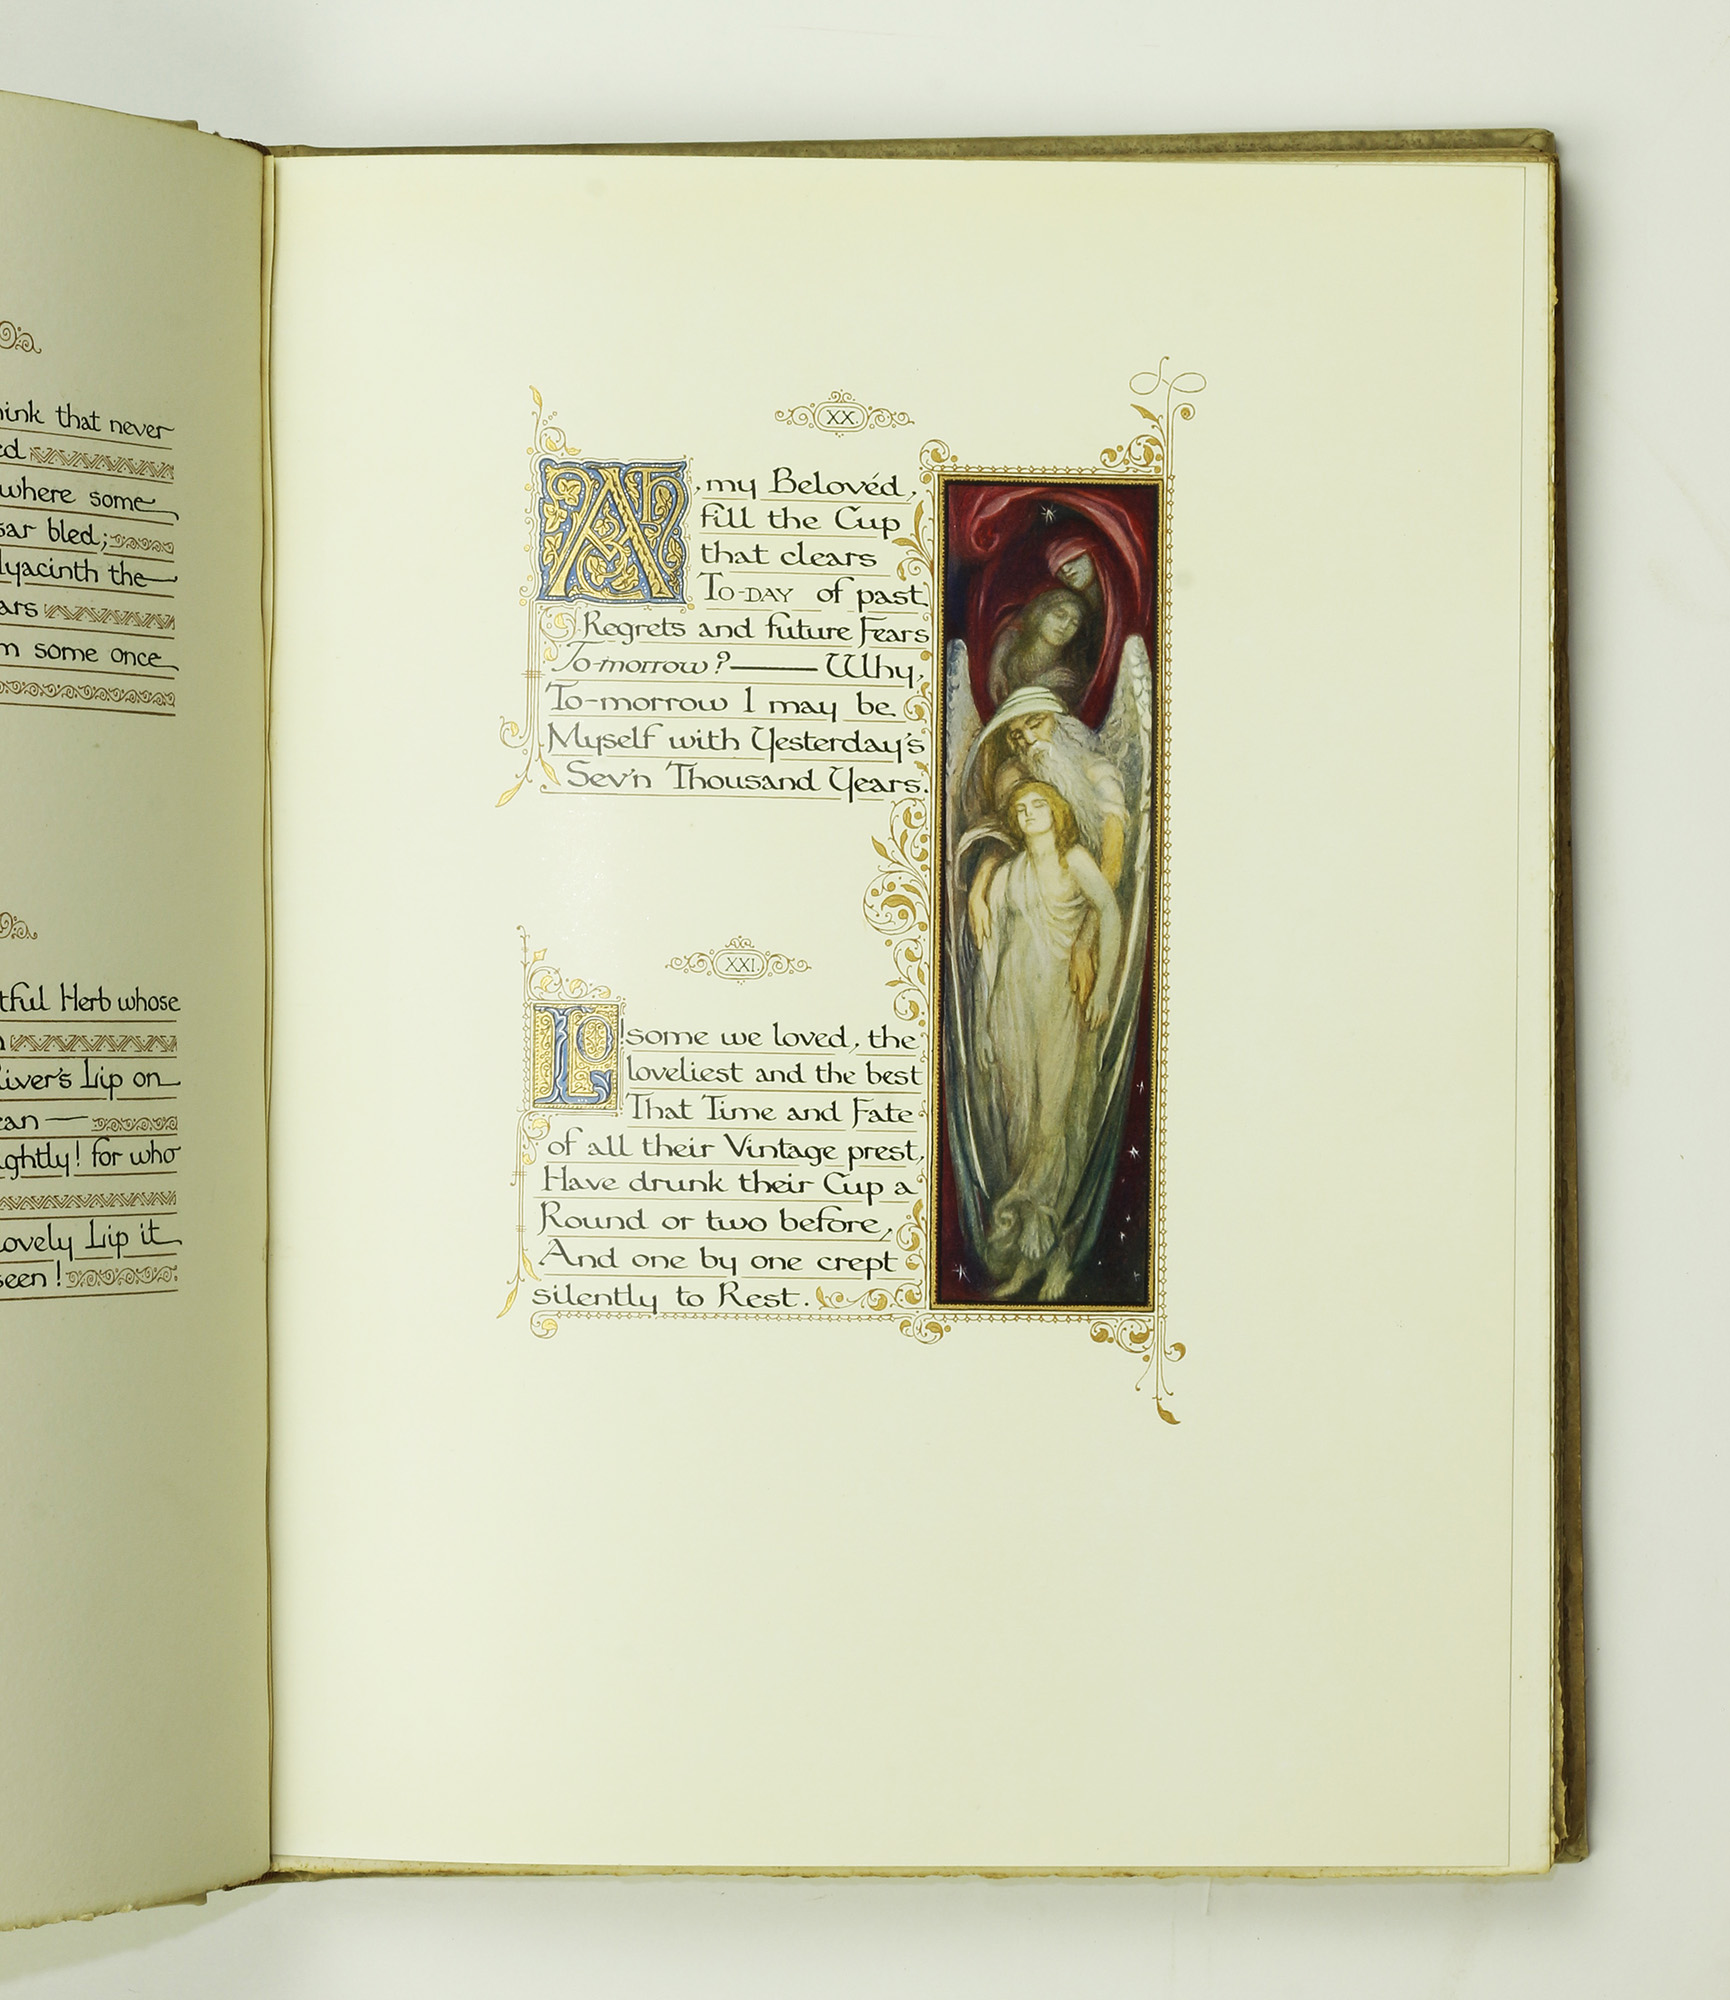 think that never
where some
bled;
Hyacinth the
some once
Herb whose
River's Lip on
Lightly! for who
Lovely Lip it
seen!
XX.
AH, my Belovéd,
fill the Cup
that clears
TO-DAY of past
Regrets and future Fears
To-morrow? — Why,
To-morrow I may be
Myself with Yesterday's
Sev'n Thousand Years.
XXI.
LO! some we loved, the
loveliest and the best
That Time and Fate
of all their Vintage prest,
Have drunk their Cup a
Round or two before,
And one by one crept
silently to Rest.